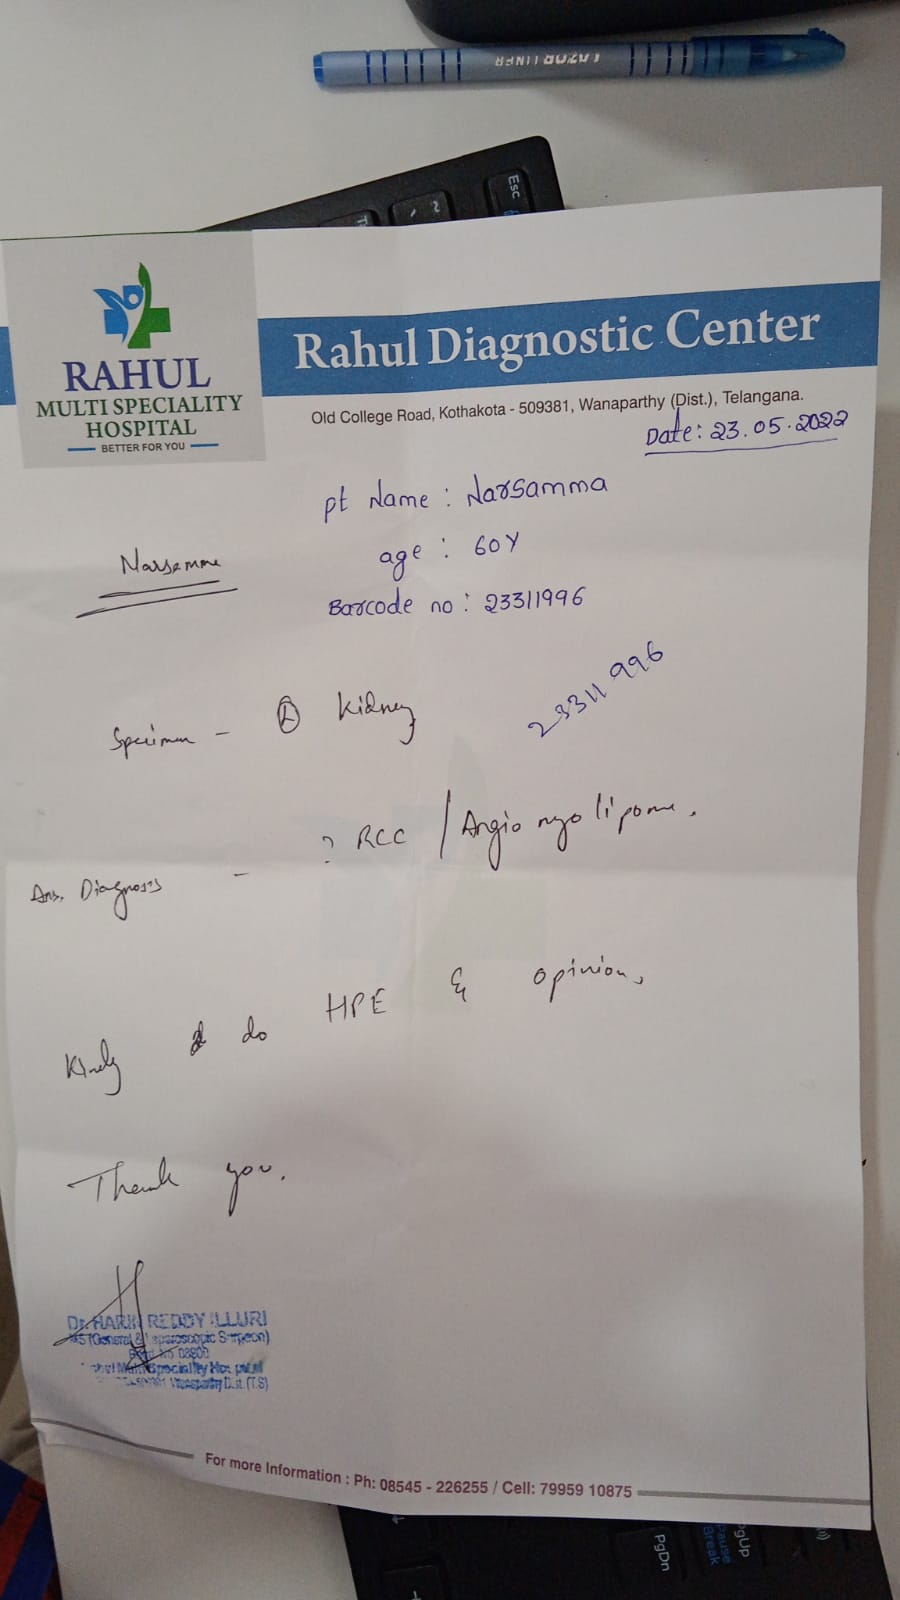 LAZOR LINER
Esc
RAHUL
MULTI SPECIALITY
HOSPITAL
BETTER FOR YOU
Rahul Diagnostic Center
Old College Road, Kothakota - 509381, Wanaparthy (Dist.), Telangana.
Date: 23.05.2022
pt Name : Narsamma
Narsamma
age : 60Y
Barcode no : 23311996
23311996
Specimen - (L) Kidney
? RCC / Angio myo lipoma.
Diagnosis -
Kindly do HPE & opinion,
Thank you.
Dr. HARIN REDDY ILLURI
MS (General & Laparoscopic Surgeon)
Multi Speciality Hospital
Wanaparthy Dist. (T.S)
For more Information : Ph: 08545 - 226255 / Cell: 79959 10875
PgDn
Pause
Break
PgUp